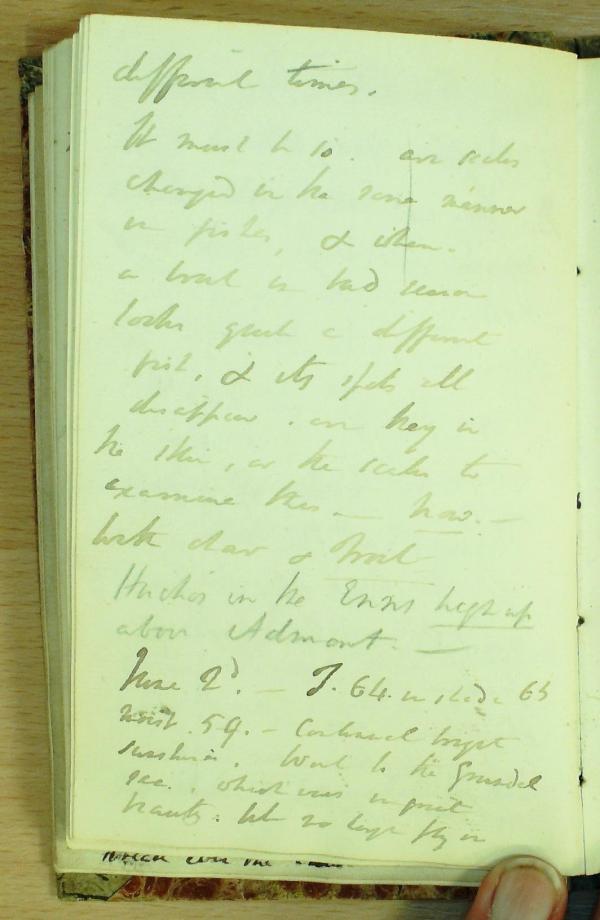 different times.
It must be so. are scales
changed in the same manner
in fishes, & when
a trout in bad season
looks quite a different
fish, & its spots all
disappear. are they in
the skin, or the scales to
examine this — now. —
both char & trout
Huchos in the Enns high up
above Admont. —
June 2d. — T. 64. in shade 63
moist. 59. — Continued bright
sunshine. Went to the Grundel
see. which was in great
beauty. fly in